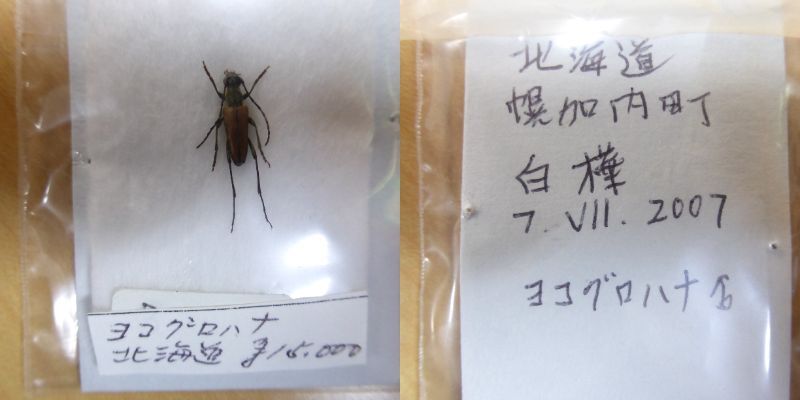 ヨコグロハナ
北海道 ¥15.000
北海道
幌加内町
白樺
7. VII. 2007
ヨコグロハナ